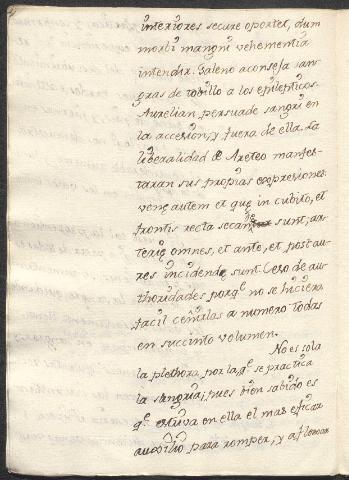 interiores secare oportet, dum
morbi mangni vehementia
intendir. Galeno aconseja san-
gras de tovillo a los epilepticos.
Aurelian persuade sangri en
la accesion, y fuera de ella. La
liberalidad de Areteo manfes-
taran sus propias expresiones.
venę autem et quę in cubito, et
frontis recta secandę sunt, ar-
terię omnes, et ante, et post au-
res incidendę sunt. Ceso de au-
thoridades porq.e no se hiciera
facil ceñirlas a numero todas
en succinto volumen.
No es sola
la plethora por la q.e se practica
la sangria, pues bien sabido es
q.e estriva en ella el mas eficax
auxilio para romper, y afloxar